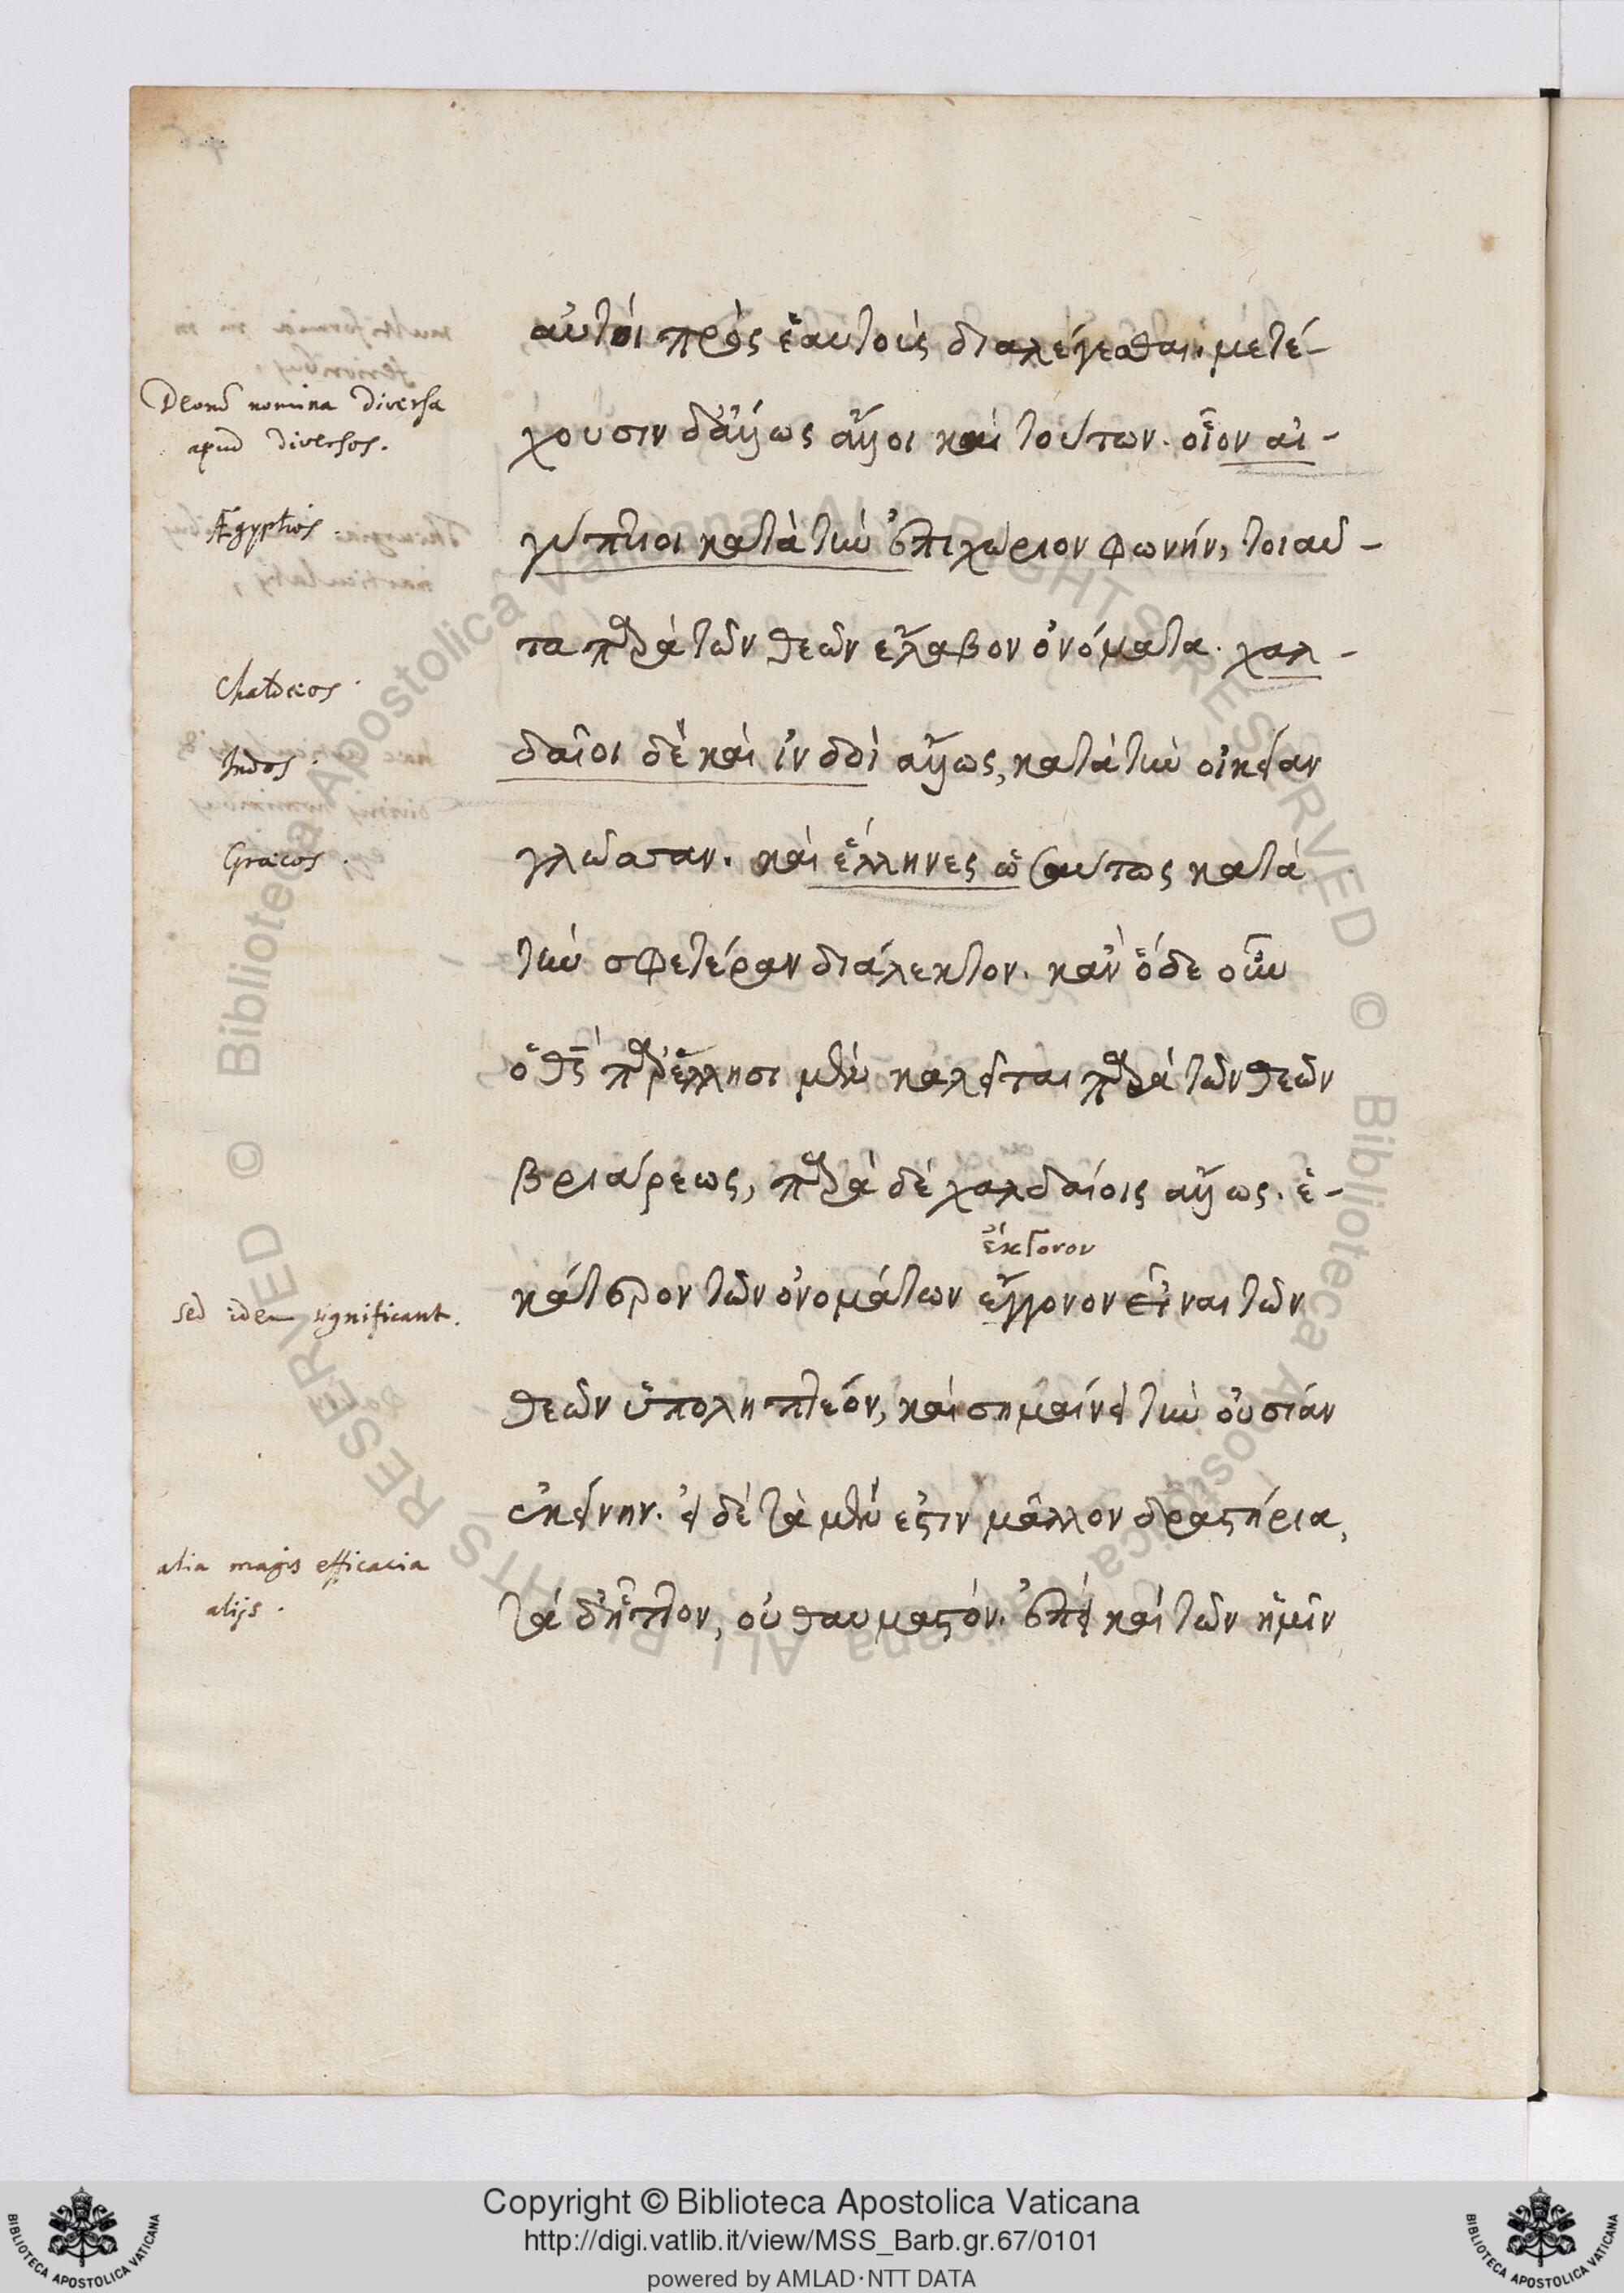 Deorũ nomina diversa
apud diversos.
Ægyptios.
Chaldæos.
Indos.
Græcos.
sed idem significant.
alia magis efficacia
alijs.
αὐτοὶ πρὸς ἑαυτοὺς διαλέγεσθαι. μετέ-
χουσιν δ' ἄλλως ἄλλοι καὶ τούτων. οἷον αἰ-
γύπτιοι κατὰ τὴν ἐπιχώριον φωνήν, τοιαῦ-
τα παρὰ τῶν θεῶν ἔλαβον ὀνόματα. χαλ-
δαῖοι δὲ καὶ ἰνδοὶ ἄλλως, κατὰ τὴν οἰκείαν
γλῶσσαν. καὶ ἕλληνες ὡσαύτως κατὰ
τὴν σφετέραν διάλεκτον. κἂν ὅδε οὖν
ὁ θς παρ' ἕλλησι μὲν καλεῖται παρὰ τῶν θεῶν
βριάρεως, παρὰ δὲ χαλδαίοις ἄλλως. ἑ-
ἔκγονον
κάτερον τῶν ὀνομάτων ἔγγονον εἶναι τῶν
θεῶν ὑποληπτέον, καὶ σημαίνει τὴν οὐσίαν
ἐκείνην. εἰ δὲ τὰ μὲν ἐστιν μᾶλλον δραστήρια,
τὰ δ' ἧττον, οὐ θαυμαστόν. ἐπεὶ καὶ τῶν ἡμῖν
© Biblioteca Apostolica Vaticana ALL RIGHTS RESERVED
© Biblioteca Apostolica Vaticana ALL RIGHTS RESERVED
Copyright © Biblioteca Apostolica Vaticana
http://digi.vatlib.it/view/MSS_Barb.gr.67/0101
powered by AMLAD·NTT DATA
BIBLIOTECA APOSTOLICA VATICANA
BIBLIOTECA APOSTOLICA VATICANA